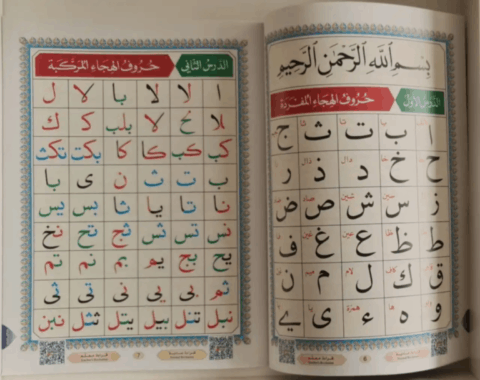 بسم الله الرحمن الرحيم
الدرس الأول
حروف الهجاء المفردة
ا ب ت ث ج
ح خ د ذ ر
ز س ش ص ض
ط ظ ع غ ف
ق ك ل م ن
و ه ء ى ے
الدرس الثاني
حروف الهجاء المركبة
ا لا لا با لا ل
لا بلب ك
كب كب كا كا بكت تكث
ب ت ث ن ى با
نا تا يا ثا بس يس
نس تس ثس ثج تح نخ
يح بج يم بم نم تم
ثم بى يى نى تى ثى
نبل تنل بيل يتل ثثل نبن